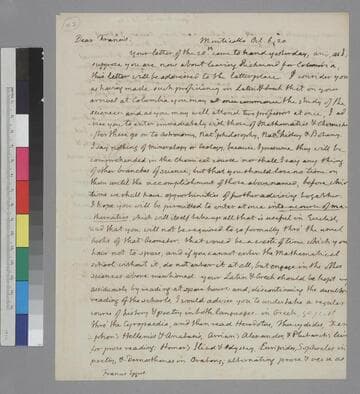 Dear Francis. Monticello Oct. 6. 20
Your letter of the came to hand yesterday, and I
suppose you are now about leaving Richmond for Columbia,
this letter will be addressed to the latter place. I consider you
as having made such proficiency in Latin & Greek that on your
arrival at Columbia you may at once commence the study of the
sciences: and as you may well attend two professors at once, I ad-
vise you to enter immediately with those of Mathematics & Chemistry.
for these go on to Astronomy, Nat'l philosophy, Nat'l history & Botany.
I say nothing of mineralogy or Geology, because I presume they will be
comprehended in the chemical course. nor shall I say any thing
of other branches of science, but that you should lose no time on
them until the accomplishment of those above named, before which
time we shall have opportunities of further advising together.
I hope you will be permitted to enter at once into a course of ma-
thematics which will itself take up all that is useful in Euclid,
and that you will not be required to go formally thro' the usual
books of that Geometer. that would be a waste of time which you
have not to spare, and if you cannot enter the Mathematical
school without it, do not enter it at all, but engage in the other
sciences above mentioned. your Latin & Greek should be kept up
assiduously by reading at spare hours: and, discontinuing the desultory
reading of the schools, I would advise you to undertake a regular
course of history & poetry in both languages. in Greek, go first
thro' the Cyropaedia, and then read Herodotus, Thucydides, Xen-
ophon's Hellenics & Anabasis, Arrian's Alexander, & Plutarch's lives
for prose reading: Homer's Iliad & Odyssey, Euripides, Sophocles in
poetry, & Demosthenes in Oratory; alternating prose & verse as
Francis Eppes